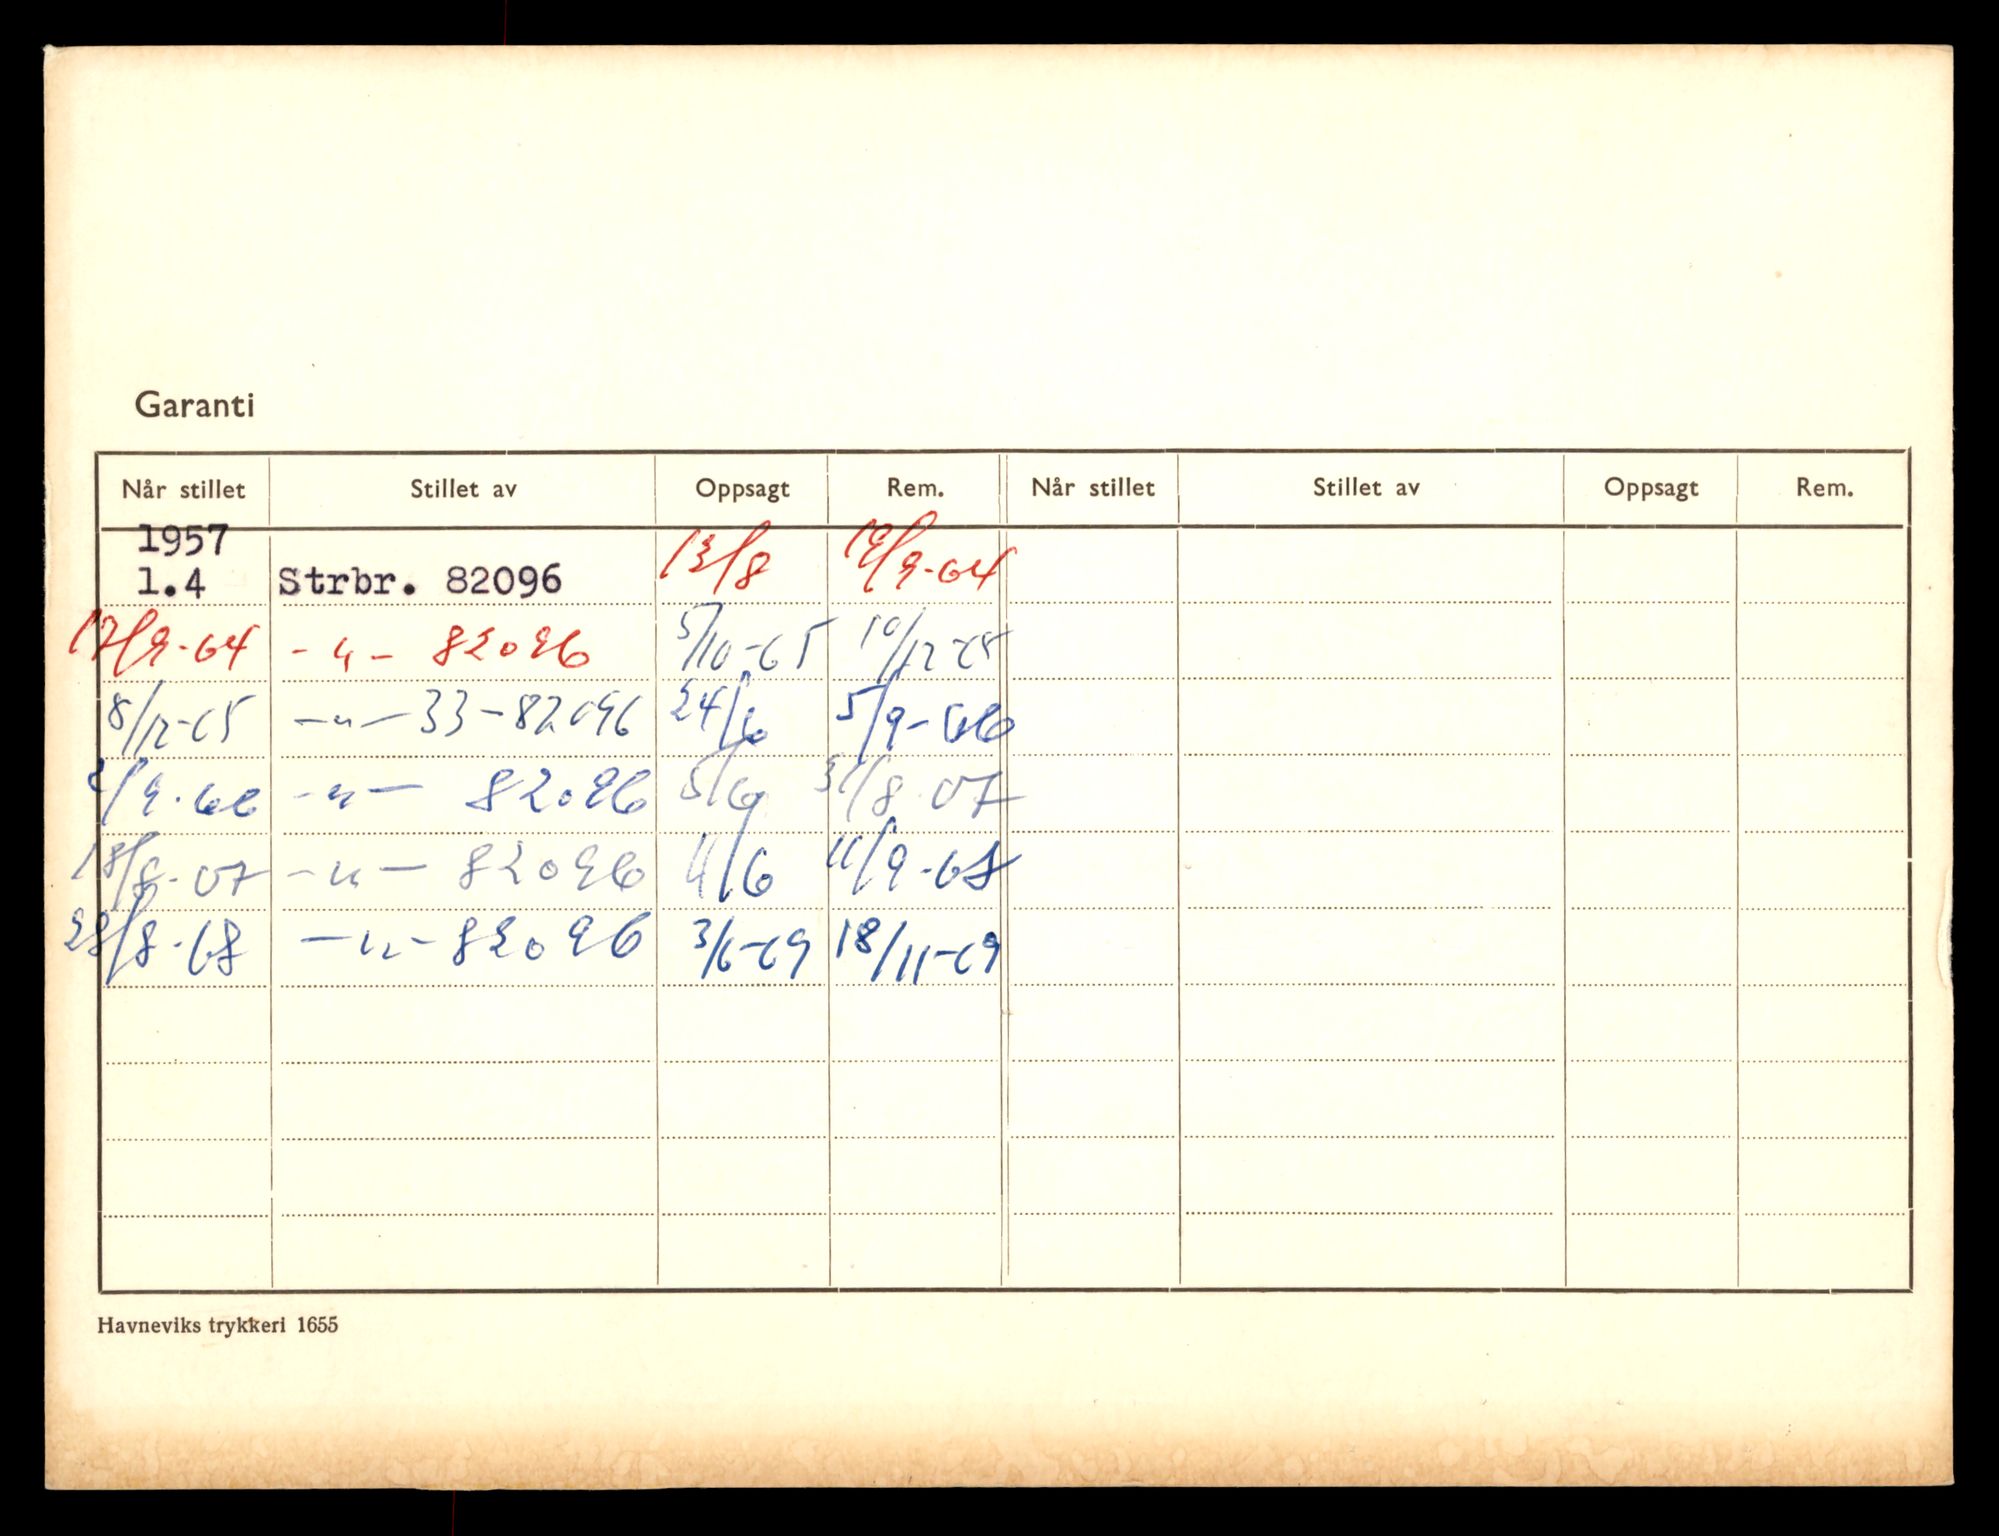 Garanti
Når stillet Stillet av Oppsagt Rem. Når stillet Stillet av Oppsagt Rem.
1957
1.4 Strbr. 82096 13/8 19/9-64
17/9-64 -"- 82096 5/10-65 10/12-65
8/12-65 -"- 33-82096 24/6 5/9-66
2/9-66 -"- 82096 5/6 31/8-67
18/8-67 -"- 82096 4/6 11/9-68
28/8-68 -"- 82096 3/6-69 18/11-69
Havneviks trykkeri 1655